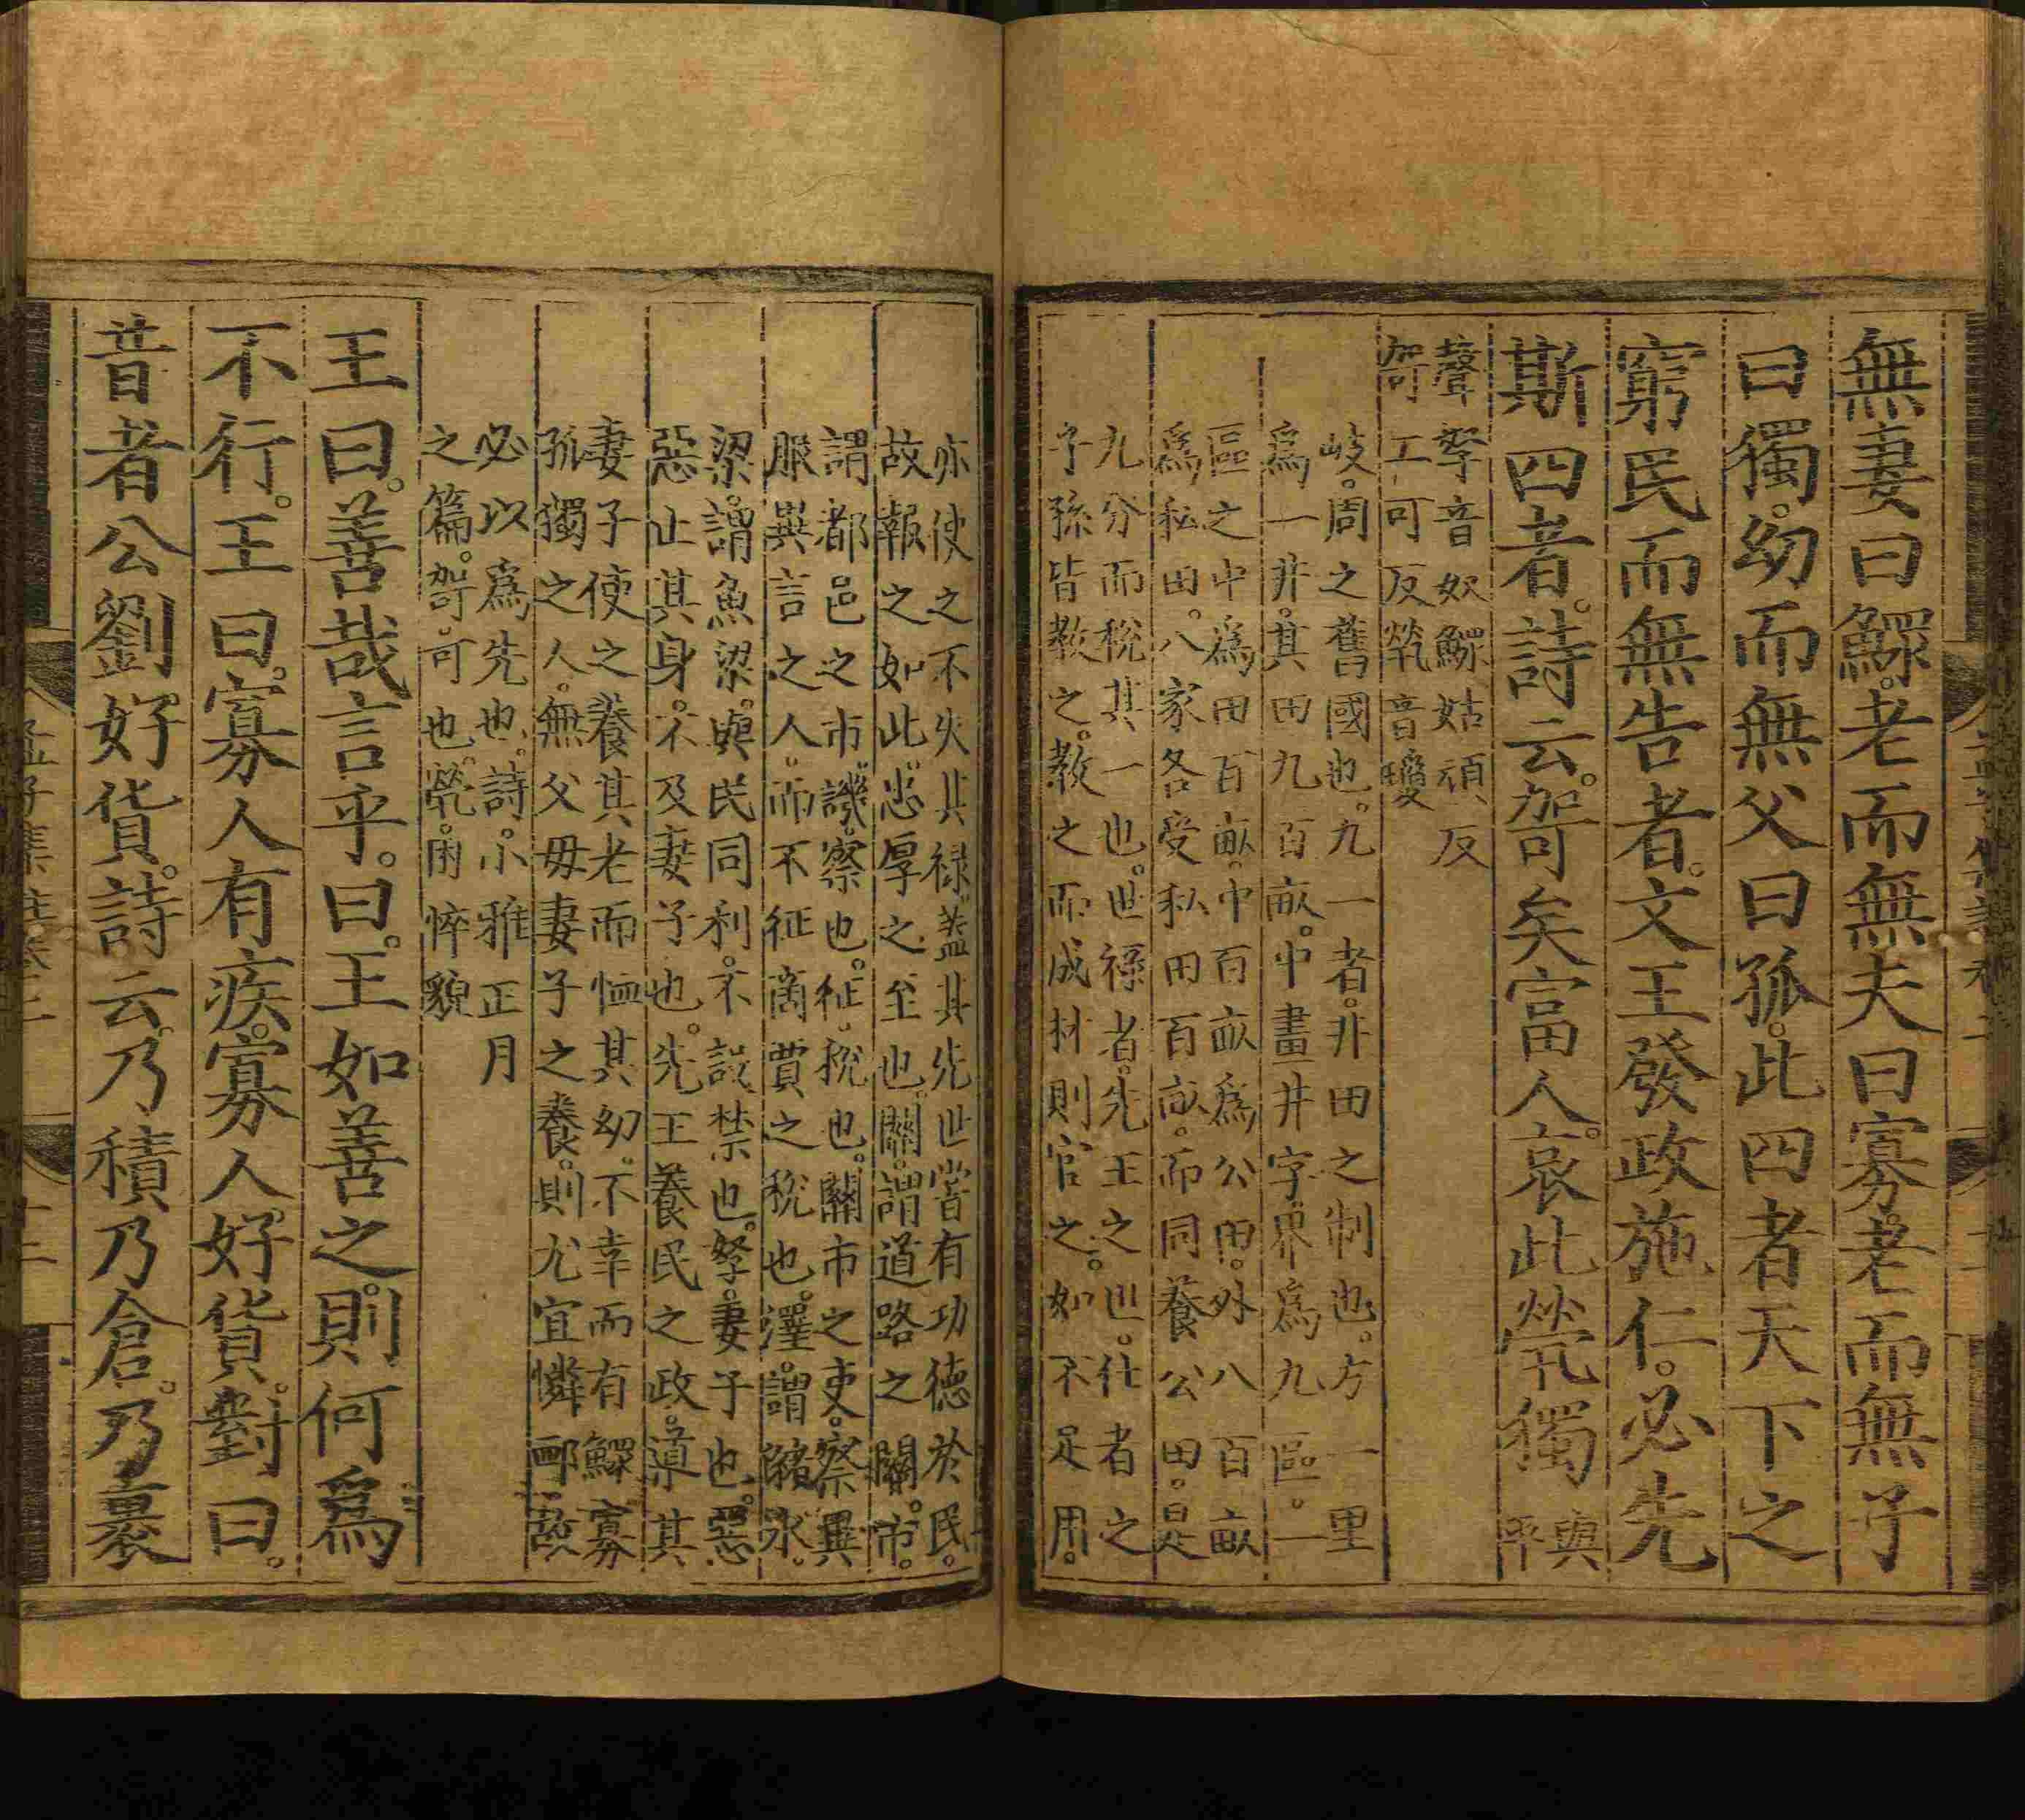 無妻曰鰥。老而無夫曰寡。老而無子
曰獨。幼而無父曰孤。此四者天下之
窮民而無告者。文王發政施仁。必先
斯四者。詩云。哿矣富人。哀此煢獨
與
平
聲孥音奴鰥姑頑反
哿工可反煢音瓊
岐。周之舊國也。九一者。井田之制也。方一里
爲一井。其田九百畝。中畫井字。界爲九區。一
區之中。爲田百畝。中百畝爲公田。外八百畝
爲私田。八家各受私田百畝。而同養公田。是
九分而稅其一也。世祿者。先王之世。仕者之
子孫皆教之。教之而成材則官之。如不足用。
亦使之不失其祿。蓋其先世嘗有功德於民。
故報之如此。忠厚之至也。關。謂道路之關。市。
謂都邑之市。譏。察也。征。稅也。關市之吏。察異
服異言之人。而不征商賈之稅也。澤。謂瀦水。
梁。謂魚梁。與民同利。不設禁也。孥。妻子也。惡
惡止其身。不及妻子也。先王養民之政。導其
妻子使之養其老而恤其幼。不幸而有鰥寡
孤獨之人。無父母妻子之養。則尤宜憐䘏。故
必以爲先也。詩。小雅正月
之篇。哿。可也。煢。困悴貌
王曰。善哉言乎。曰。王如善之。則何爲
不行。王曰。寡人有疾。寡人好貨。對曰。
昔者公劉好貨。詩云。乃積乃倉。乃裹
孟子集註卷二